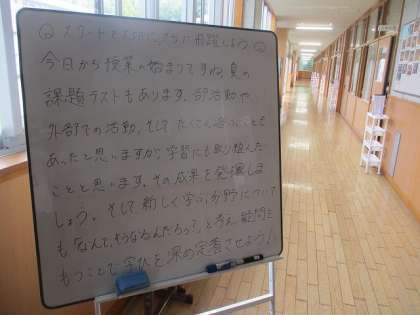 スタートを大切に、さらに飛躍しよう
今日から授業の始まりですね。夏の
課題テストもあります。部活動や
外部での活動、そして たくさん遊んだことも
あったと思いますが、学習にも取り組んだ
ことと思います。その成果を発揮しま
しょう。そして新しく学ぶ分野について
も「なんで、そうなるんだろう?」と考え、疑問を
もつことで学びを深め定着させよう!